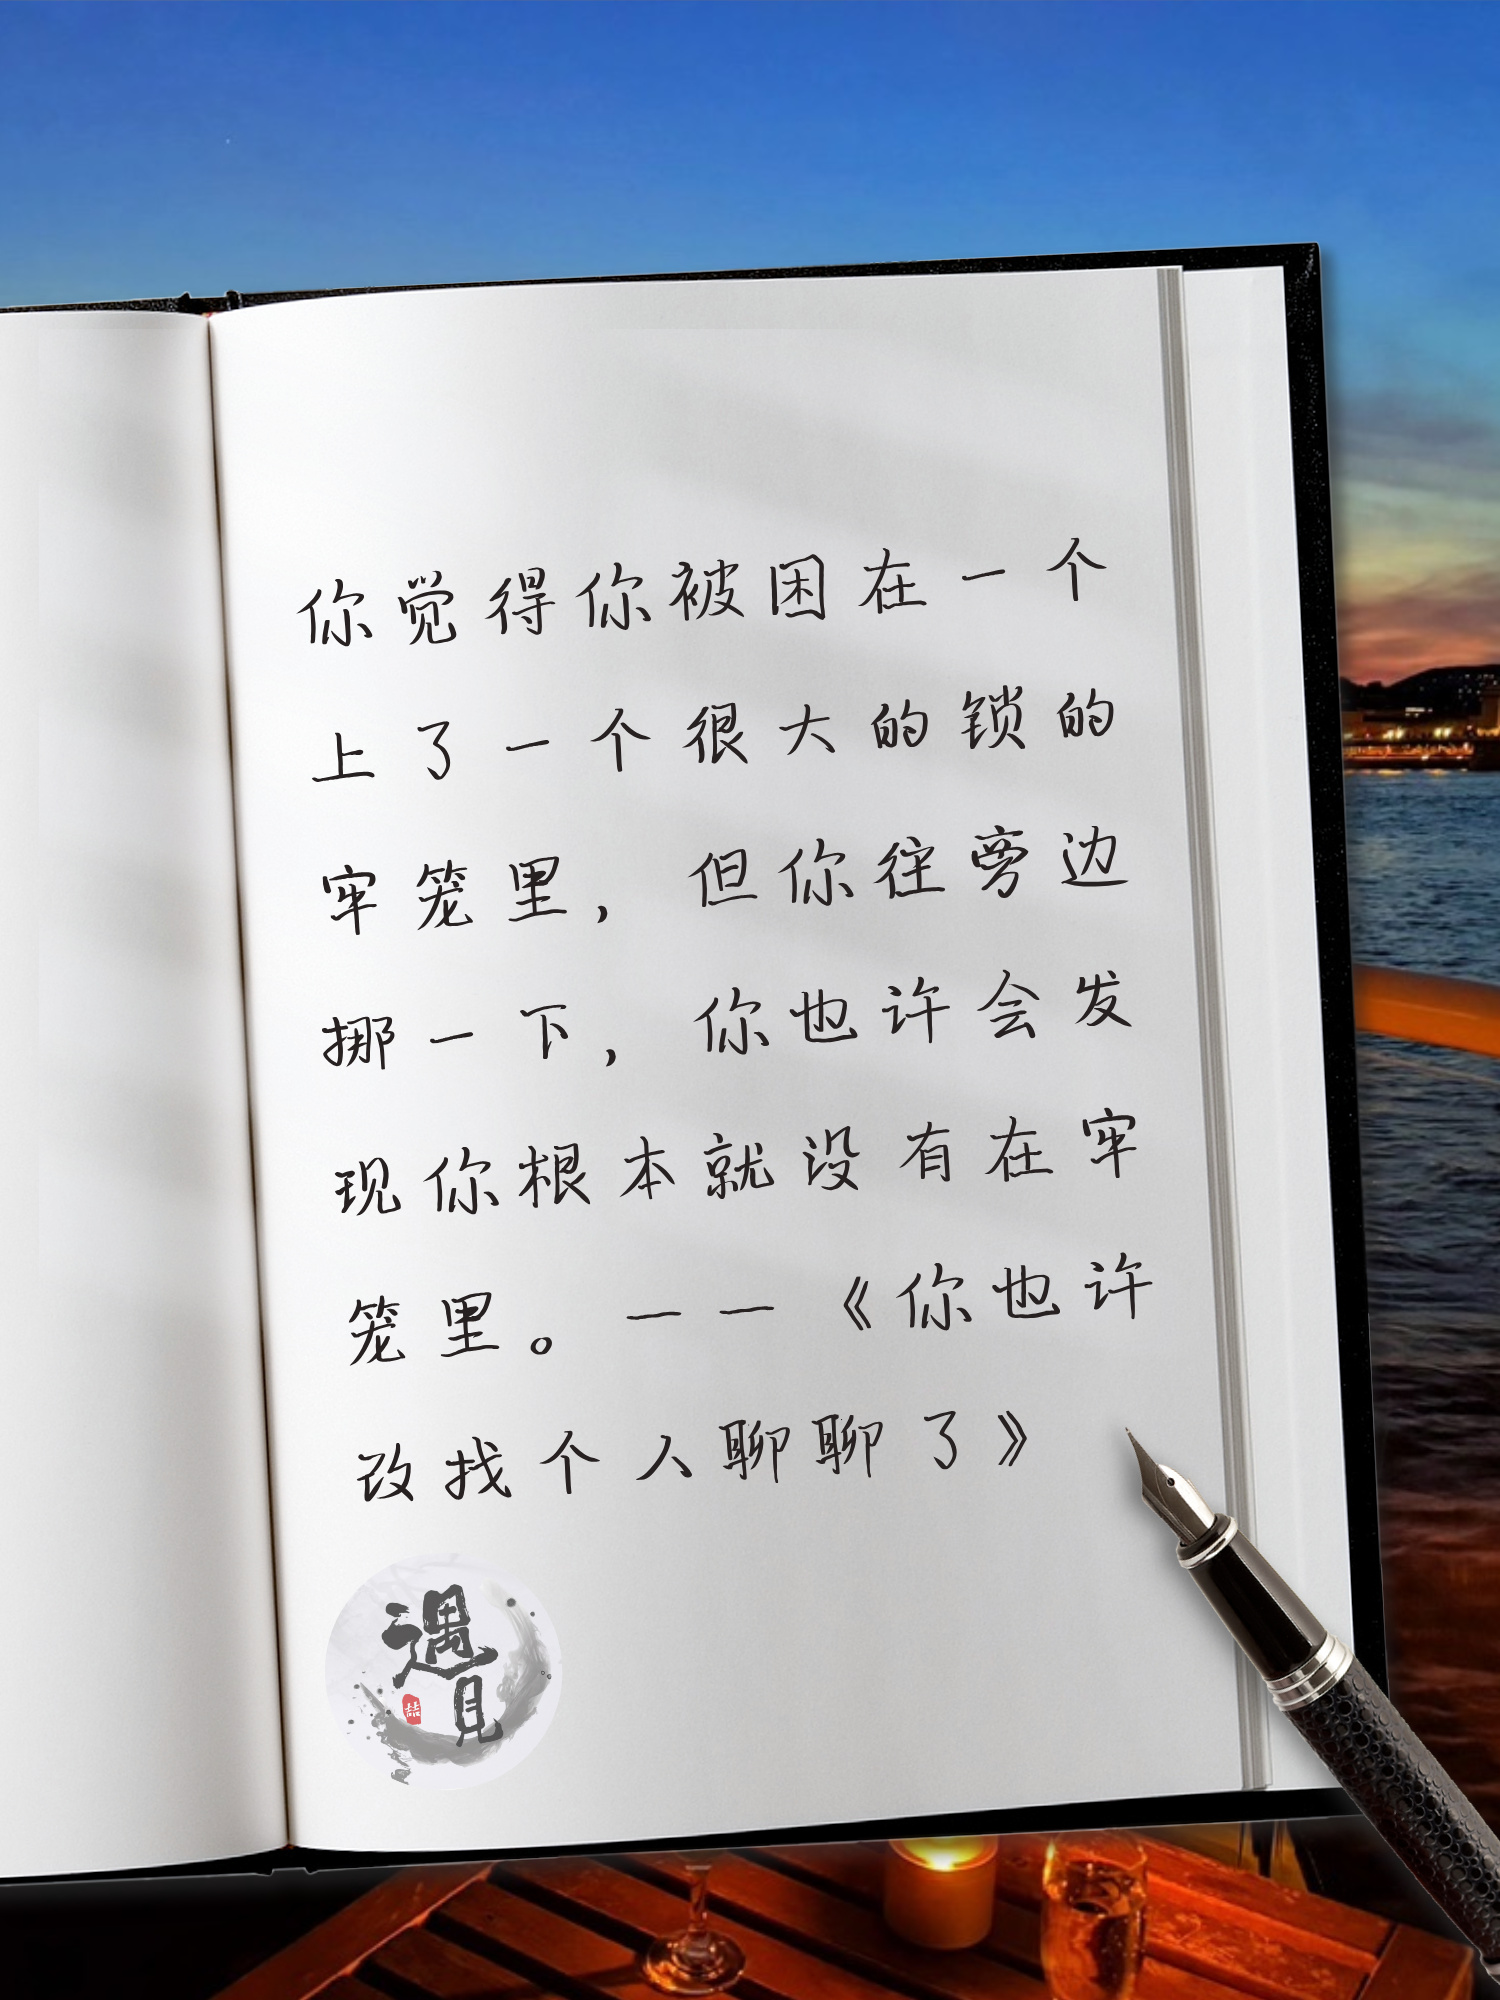 你觉得你被困在一个
上了一个很大的锁的
牢笼里，但你往旁边
挪一下，你也许会发
现你根本就没有在牢
笼里。——《你也许
改找个人聊聊了》
遇见
喆